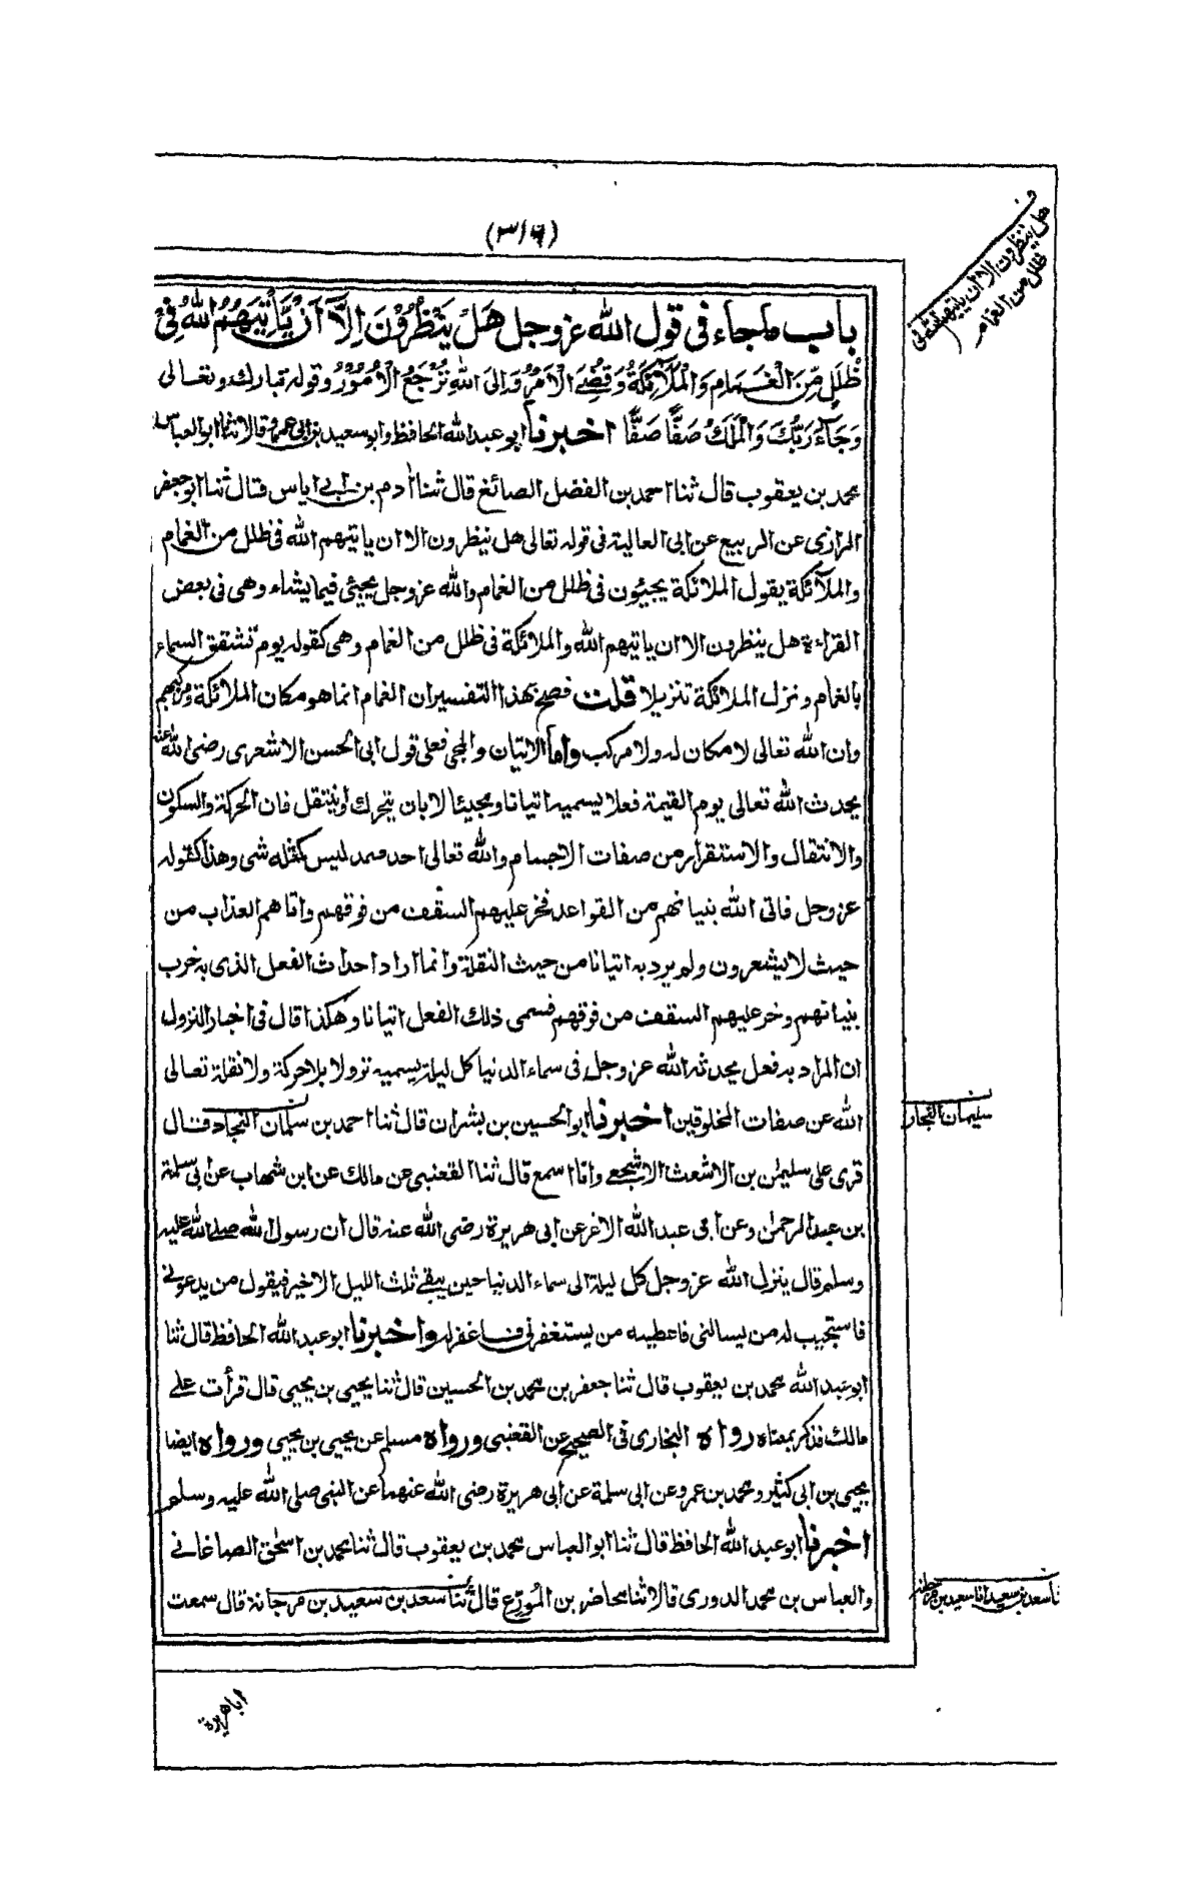 (٣١٦)
هل ينظرون الا ان ياتيهم الله في
ظلل من الغمام
باب ما جاء فى قول الله عز وجل هَلْ يَنْظُرُوْنَ اِلَّآ اَنْ يَّاْتِيَهُمُ اللهُ فِيْ
ظُلَلٍ مِّنَ الْغَمَامِ وَالْمَلَآئِكَةُ وَقُضِيَ الْاَمْرُ وَاِلَى اللهِ تُرْجَعُ الْاُمُوْرُ وقوله تبارك وتعالى
وَجَآءَ رَبُّكَ وَالْمَلَكُ صَفًّا صَفًّا اخبرنا ابو عبد الله الحافظ وابو سعيد بن ابى عمرو قالا ثنا ابو العباس
محمد بن يعقوب قال ثنا احمد بن الفضل الصائغ قال ثنا اٰدم بن ابى اياس قال ثنا ابو جعفر
الرازى عن الربيع عن ابى العالية فى قوله تعالى هل ينظرون الا ان ياتيهم الله فى ظلل من الغمام
والملآئكة يقول الملائكة يجيئون فى ظلل من الغمام والله عز وجل يجيئى فيما يشاء وهى فى بعض
القراءة هل ينظرون الا ان ياتيهم الله والملائكة فى ظلل من الغمام وهى كقوله يوم تشقق السماء
بالغمام ونزل الملائكة تنزيلا قلت فصح بهذا التفسير ان الغمام انما هو مكان الملائكة ومركبهم
وان الله تعالى لا مكان له ولا مركب واما الاتيان والمجى فعلى قول ابى الحسن الاشعرى رضى الله عنه
يحدث الله تعالى يوم القيمة فعلا يسميه اتيانا ومجيئا لا بان يتحرك او ينتقل فان الحركة والسكون
والانتقال والاستقرار من صفات الاجسام والله تعالى احد صمد ليس كمثله شى وهذا كقوله
عز وجل فاتى الله بنيانهم من القواعد فخر عليهم السقف من فوقهم واتاهم العذاب من
حيث لا يشعرون ولم يرد به اتيانا من حيث النقلة وانما اراد احداث الفعل الذى به خرب
بنيانهم وخر عليهم السقف من فوقهم فسمى ذلك الفعل اتيانا وهكذا قال فى اخبار النزول
ان المراد به فعل يحدثه الله عز وجل فى سماء الدنيا كل ليلة يسميه نزولا بلا حركة ولا نقلة تعالى
الله عن صفات المخلوقين اخبرنا ابو الحسين بن بشران قال ثنا احمد بن سلمان النجاد قال
سليمان النجار
قرى على سليمٰن بن الاشعث الاشجعى وانا اسمع قال ثنا القعنبى عن مالك عن ابن شهاب عن ابى سلمة
بن عبد الرحمٰن وعن ابى عبد الله الاغر عن ابى هريرة رضى الله عنه قال ان رسول الله صلى الله عليه
وسلم قال ينزل الله عز وجل كل ليلة الى سماء الدنيا حين يبقى ثلث الليل الاخير فيقول من يدعونى
فاستجيب له من يسالنى فاعطيه من يستغفرنى فاغفر له واخبرنا ابو عبد الله الحافظ قال ثنا
ابو عبد الله محمد بن يعقوب قال ثنا جعفر بن محمد بن الحسين قال ثنا يحيى بن يحيى قال قرأت على
مالك فذكر بمعناه رواه البخارى فى الصحيح عن القعنبى ورواه مسلم عن يحيى بن يحيى ورواه ايضا
يحيى بن ابى كثير ومحمد بن عمرو عن ابى سلمة عن ابى هريرة رضى الله عنهما عن النبى صلى الله عليه وسلم
اخبرنا ابو عبد الله الحافظ قال ثنا ابو العباس محمد بن يعقوب قال ثنا محمد بن اسحٰق الصاغانى
والعباس بن محمد الدورى قالا ثنا محاضر بن المُوَرِّع قال ثنا سعد بن سعيد بن مرجانة قال سمعت
نا سعد بن سعيد انا سعيد بن مرجانة
اباهريرة